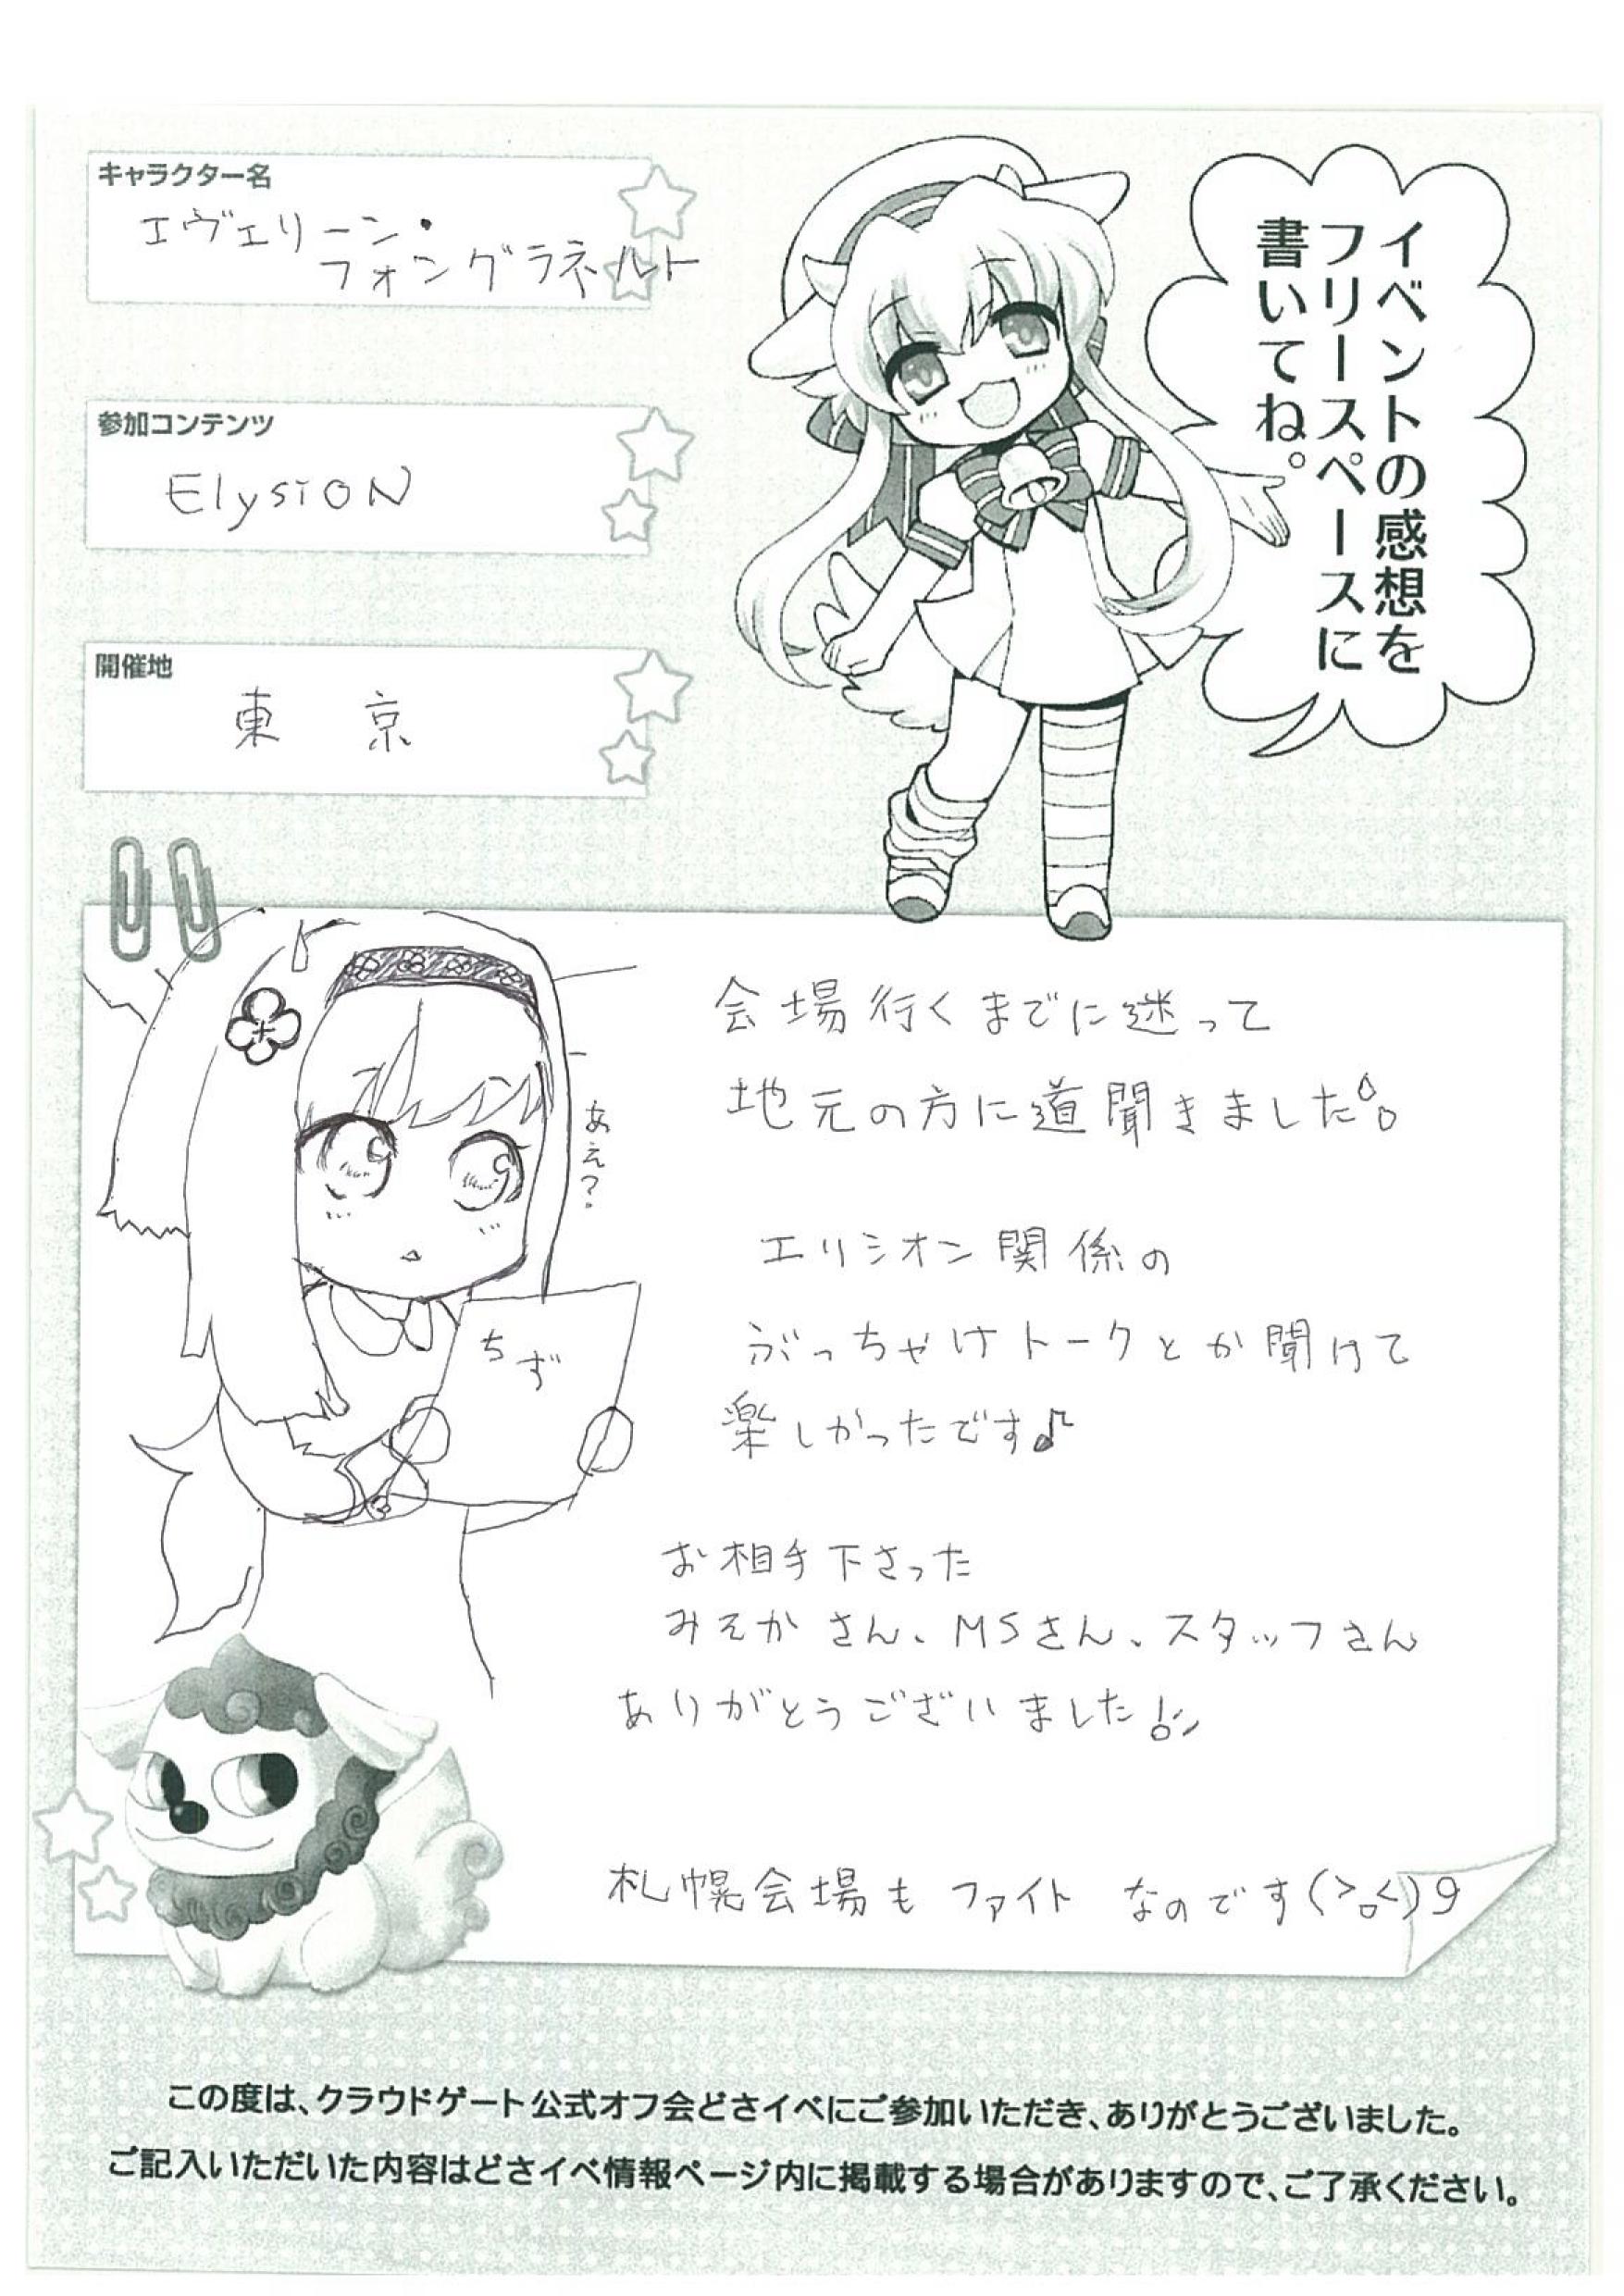 キャラクター名
エヴェリーン・
フォングラネルト
参加コンテンツ
ElysioN
開催地
東 京
イベントの感想を
フリースペースに
書いてね。
会場行くまでに迷って
地元の方に道聞きました。
あえ?
ちず
エリシオン関係の
ぶっちゃけトークとか聞けて
楽しかったです♪
お相手下さった
みそかさん、MSさん、スタッフさん
ありがとうございました!
札幌会場もファイトなのです(>o<)9
この度は、クラウドゲート公式オフ会どさイベにご参加いただき、ありがとうございました。
ご記入いただいた内容はどさイベ情報ページ内に掲載する場合がありますので、ご了承ください。